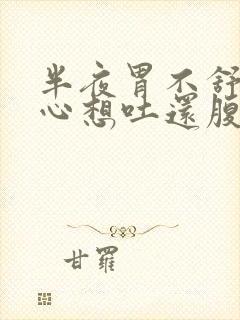 半夜胃不舒
心想吐還腹
甘羅